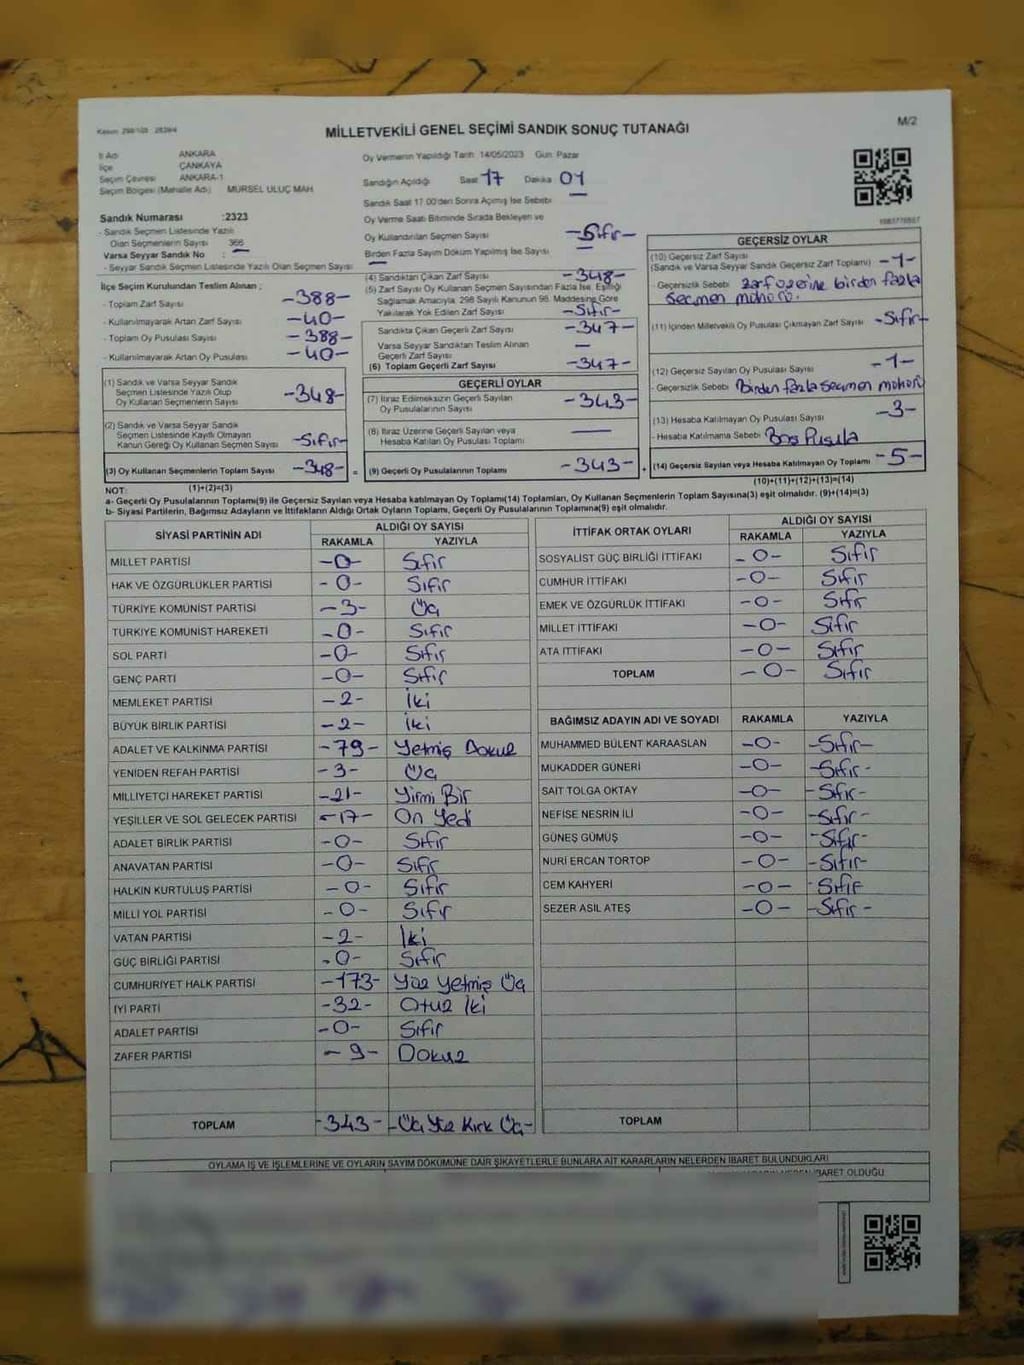 MİLLETVEKİLİ GENEL SEÇİMİ SANDIK SONUÇ TUTANAĞI
M/2
İl Adı ANKARA
İlçe ÇANKAYA
Seçim Çevresi ANKARA-1
Seçim Bölgesi (Mahalle Adı) MÜRSEL ULUÇ MAH.
Sandık Numarası :2323
- Sandık Seçmen Listesinde Yazılı
Olan Seçmenlerin Sayısı 366
Varsa Seyyar Sandık No :
- Seyyar Sandık Seçmen Listesinde Yazılı Olan Seçmen Sayısı
İlçe Seçim Kurulundan Teslim Alınan ;
- Toplam Zarf Sayısı -388-
- Kullanılmayarak Artan Zarf Sayısı -40-
- Toplam Oy Pusulası -388-
- Kullanılmayarak Artan Oy Pusulası -40-
(1) Sandık ve Varsa Seyyar Sandık
Seçmen Listesinde Yazılı Olup
Oy Kullanan Seçmenlerin Sayısı -348-
(2) Sandık ve Varsa Seyyar Sandık
Seçmen Listesinde Kayıtlı Olmayan
Kanun Gereği Oy Kullanan Seçmen Sayısı -Sıfır-
(3) Oy Kullanan Seçmenlerin Toplam Sayısı -348- =
(1)+(2)=(3)
Oy Vermenin Yapıldığı Tarih 14/05/2023 Gün Pazar
Sandığın Açıldığı Saat 17 Dakika 01
Sandık Saat 17.00'den Sonra Açılmış İse Sebebi
Oy Verme Saati Bitiminde Sırada Bekleyen ve
Oy Kullandırılan Seçmen Sayısı -Sıfır-
Birden Fazla Sayım Döküm Yapılmış İse Sayısı —
(4) Sandıktan Çıkan Zarf Sayısı -348-
(5) Zarf Sayısı Oy Kullanan Seçmen Sayısından Fazla İse, Eşitliği
Sağlamak Amacıyla, 298 Sayılı Kanunun 98. Maddesine Göre
Yakılarak Yok Edilen Zarf Sayısı -Sıfır-
Sandıkta Çıkan Geçerli Zarf Sayısı -347-
Varsa Seyyar Sandıktan Teslim Alınan
Geçerli Zarf Sayısı —
(6) Toplam Geçerli Zarf Sayısı -347-
GEÇERLİ OYLAR
(7) İtiraz Edilmeksizin Geçerli Sayılan
Oy Pusulalarının Sayısı -343-
(8) İtiraz Üzerine Geçerli Sayılan veya
Hesaba Katılan Oy Pusulası Toplamı —
(9) Geçerli Oy Pusulalarının Toplamı -343- +
GEÇERSİZ OYLAR
(10) Geçersiz Zarf Sayısı
(Sandık ve Varsa Seyyar Sandık Geçersiz Zarf Toplamı) -1-
- Geçersizlik Sebebi zarf üzerine birden fazla
seçmen mührü.
(11) İçinden Milletvekili Oy Pusulası Çıkmayan Zarf Sayısı -Sıfır-
(12) Geçersiz Sayılan Oy Pusulası Sayısı -1-
- Geçersizlik Sebebi Birden fazla seçmen mührü
(13) Hesaba Katılmayan Oy Pusulası Sayısı -3-
- Hesaba Katılmama Sebebi Boş Pusula
(14) Geçersiz Sayılan veya Hesaba Katılmayan Oy Toplamı -5-
(10)+(11)+(12)+(13)=(14)
NOT:
a- Geçerli Oy Pusulalarının Toplamı(9) ile Geçersiz Sayılan veya Hesaba katılmayan Oy Toplamı(14) Toplamları, Oy Kullanan Seçmenlerin Toplam Sayısına(3) eşit olmalıdır. (9)+(14)=(3)
b- Siyasi Partilerin, Bağımsız Adayların ve İttifakların Aldığı Ortak Oyların Toplamı, Geçerli Oy Pusulalarının Toplamına(9) eşit olmalıdır.
SİYASİ PARTİNİN ADI ALDIĞI OY SAYISI
RAKAMLA YAZIYLA
MİLLET PARTİSİ -0- Sıfır
HAK VE ÖZGÜRLÜKLER PARTİSİ -0- Sıfır
TÜRKİYE KOMÜNİST PARTİSİ -3- Üç
TÜRKİYE KOMÜNİST HAREKETİ -0- Sıfır
SOL PARTİ -0- Sıfır
GENÇ PARTİ -0- Sıfır
MEMLEKET PARTİSİ -2- İki
BÜYÜK BİRLİK PARTİSİ -2- İki
ADALET VE KALKINMA PARTİSİ -79- Yetmiş Dokuz
YENİDEN REFAH PARTİSİ -3- Üç
MİLLİYETÇİ HAREKET PARTİSİ -21- Yirmi Bir
YEŞİLLER VE SOL GELECEK PARTİSİ -17- On Yedi
ADALET BİRLİK PARTİSİ -0- Sıfır
ANAVATAN PARTİSİ -0- Sıfır
HALKIN KURTULUŞ PARTİSİ -0- Sıfır
MİLLİ YOL PARTİSİ -0- Sıfır
VATAN PARTİSİ -2- İki
GÜÇ BİRLİĞİ PARTİSİ -0- Sıfır
CUMHURİYET HALK PARTİSİ -173- Yüz Yetmiş Üç
İYİ PARTİ -32- Otuz İki
ADALET PARTİSİ -0- Sıfır
ZAFER PARTİSİ -9- Dokuz
TOPLAM -343- -Üç Yüz Kırk Üç-
İTTİFAK ORTAK OYLARI ALDIĞI OY SAYISI
RAKAMLA YAZIYLA
SOSYALİST GÜÇ BİRLİĞİ İTTİFAKI -0- Sıfır
CUMHUR İTTİFAKI -0- Sıfır
EMEK VE ÖZGÜRLÜK İTTİFAKI -0- Sıfır
MİLLET İTTİFAKI -0- Sıfır
ATA İTTİFAKI -0- Sıfır
TOPLAM -0- Sıfır
BAĞIMSIZ ADAYIN ADI VE SOYADI RAKAMLA YAZIYLA
MUHAMMED BÜLENT KARAASLAN -0- -Sıfır-
MUKADDER GÜNERİ -0- -Sıfır-
SAİT TOLGA OKTAY -0- -Sıfır-
NEFİSE NESRİN İLİ -0- -Sıfır-
GÜNEŞ GÜMÜŞ -0- -Sıfır-
NURİ ERCAN TORTOP -0- -Sıfır-
CEM KAHYERİ -0- -Sıfır
SEZER ASIL ATEŞ -0- -Sıfır-
TOPLAM
OYLAMA İŞ VE İŞLEMLERİNE VE OYLARIN SAYIM DÖKÜMÜNE DAİR ŞİKAYETLERLE BUNLARA AİT KARARLARIN NELERDEN İBARET BULUNDUKLARI
İBARET OLDUĞU